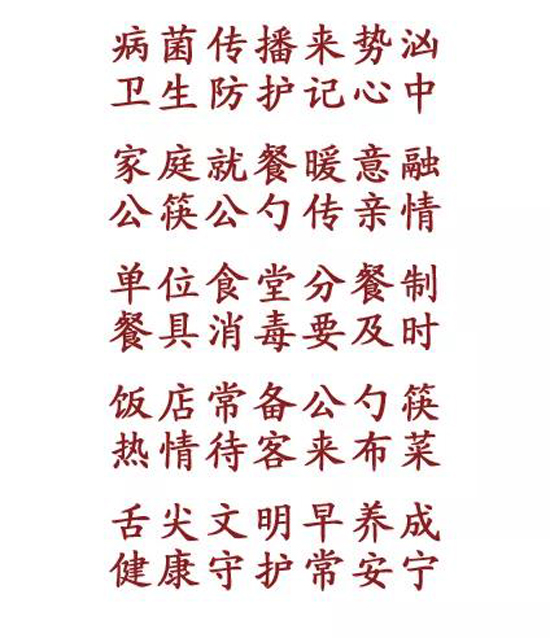 病菌传播来势汹
卫生防护记心中
家庭就餐暖意融
公筷公勺传亲情
单位食堂分餐制
餐具消毒要及时
饭店常备公勺筷
热情待客来布菜
舌尖文明早养成
健康守护常安宁